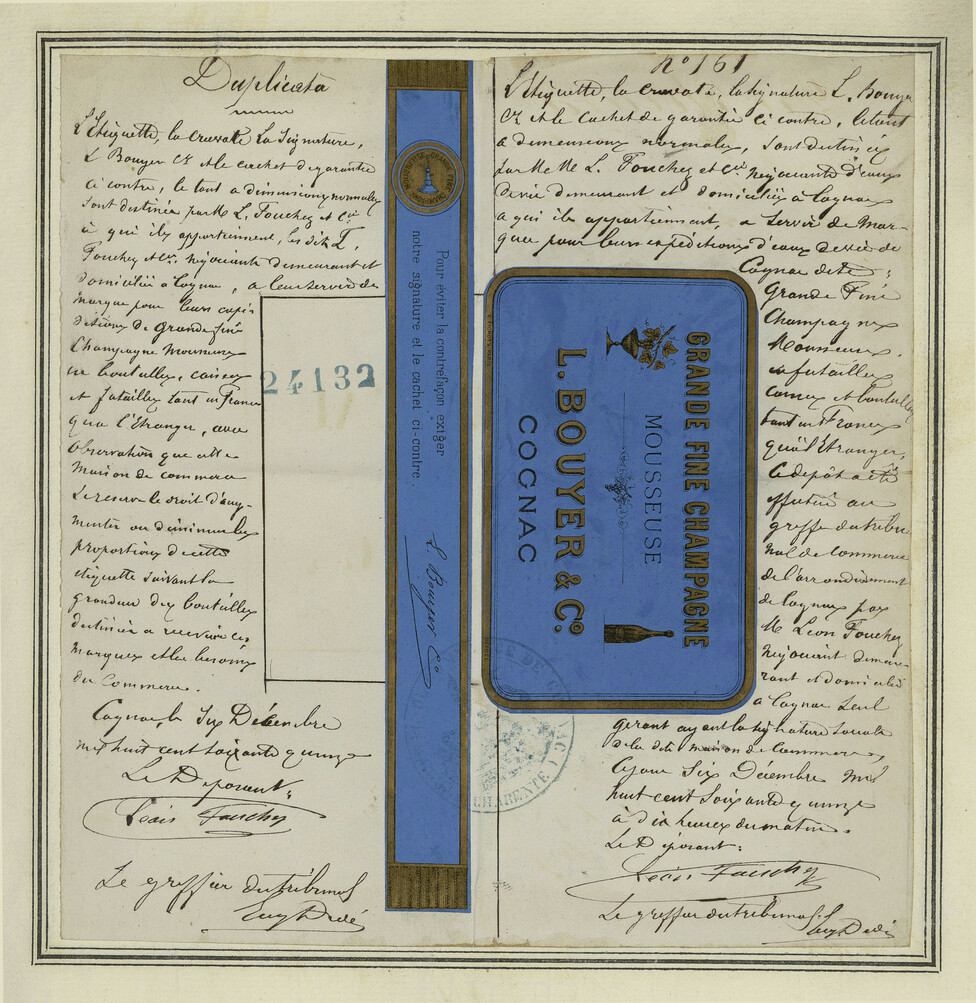 Duplicata
L'Etiquette, la cravate la signature,
L Bouyer Cie et le cachet de garantie
ci contre, le tout a dimensions normales
sont destinés par M L. Fouchez et Cie
à qui ils appartiennent, les dits L.
Fouchez et Cie. négociants demeurant et
domiciliés à Cognac, a leur servir de
marque pour leurs expé-
ditions de Grande fine
Champagne Mousseuse
en bouteilles, caisses
et futailles tant en France
qu'a l'Etranger, avec
observation que cette
Maison de commerce
se réserve le droit d'aug-
menter ou diminuer les
proportions de cette
étiquette suivant la
grandeur des bouteilles
destinées a recevoir ces
marques et les besoins
du Commerce.
Cognac, le Six Décembre
mil huit cent soixante quinze
Le Déposant:
Le greffier du tribunal
24132
Pour éviter la contrefaçon exiger
notre signature et le cachet ci-contre.
L. Bouyer Co
GRANDE FINE CHAMPAGNE
MOUSSEUSE
L. BOUYER & Co.
COGNAC
No 161
L'Etiquette, la cravate, la signature L. Bouyer
Cie et le cachet de garantie ci contre, le tout
a dimensions normales, sont destinés
par MM L. Fouchez et Cie négociants d'eaux
de vie demeurant et domiciliés à Cognac
a qui ils appartiennent, a servir de Mar-
que pour leurs expéditions d'eaux de vie de
Cognac dite:
Grande Fine
Champagne
Mousseuse.
en futailles
caisses et bouteilles
tant en France
qu'à l'Etranger,
Ce dépôt a été
effectué au
greffe du tribu-
nal de Commerce
de l'arrondissement
de Cognac par
M Léon Fouchez
négociant demeu-
rant et domicilié
a Cognac seul
gérant ayant la signature sociale
de la dite maison de Commerce,
Ce jour Six Décembre mil
huit cent soixante quinze
à dix heures du matin.
Le Déposant:
Le greffier du tribunal
CHARENTE